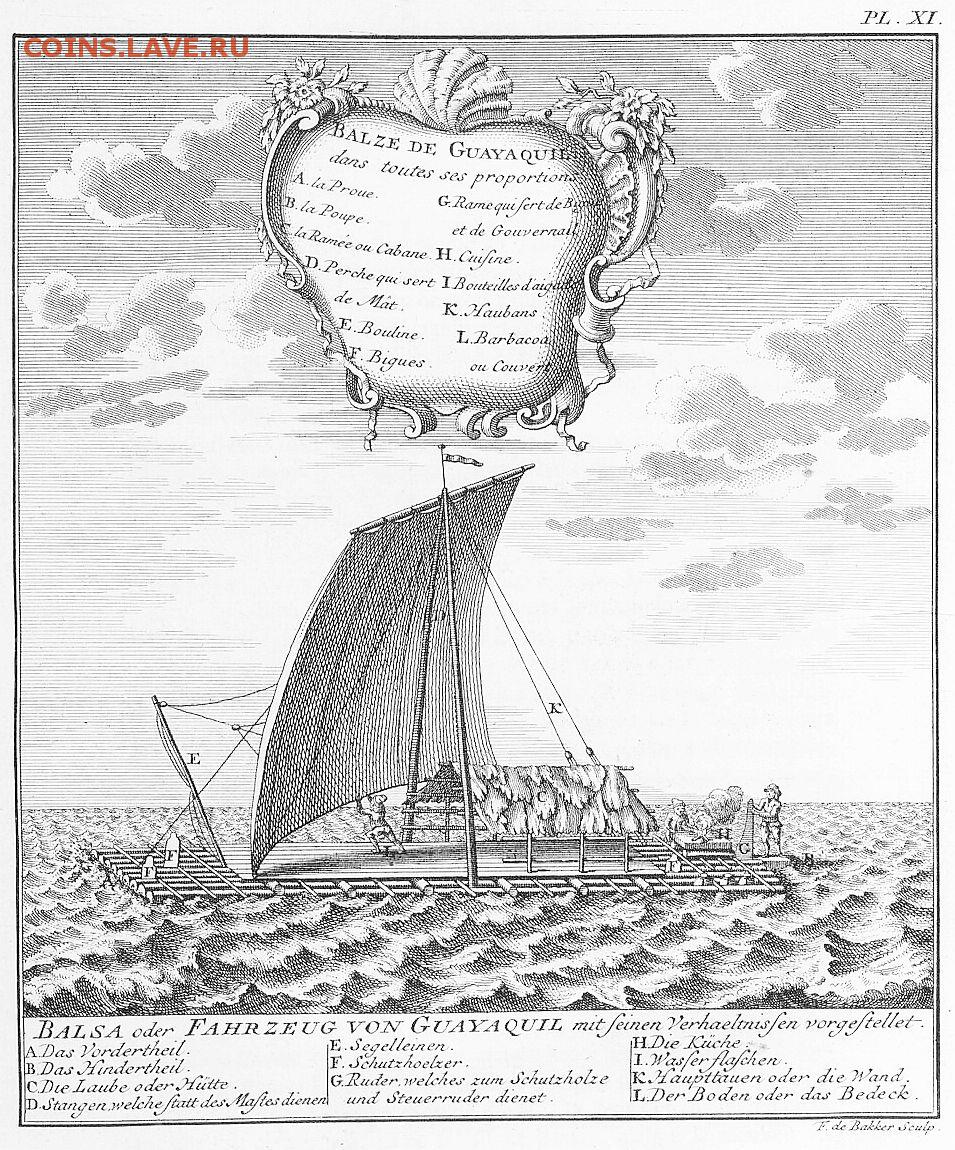 PL. XI.
COINS.LAVE.RU
BALZE DE GUAYAQUIL
dans toutes ses proportions
A. la Proue.
B. la Poupe.
la Ramée ou Cabane.
D. Perche qui sert
de Mât.
E. Bouline.
F. Bigues.
G. Rame qui sert de
et de Gouvernail
H. Cuisine.
I Bouteilles
K. Haubans
L. Barbacoa
ou Couvert
D
K
E
C
H
G
F
F
F
L
B
BALSA oder FAHRZEUG VON GUAYAQUIL mit seinen Verhaeltnissen vorgestellet.
A. Das Vordertheil.
B. Das Hindertheil.
C. Die Laube oder Hütte.
D. Stangen, welche statt des Mastes dienen
E. Segelleinen.
F. Schutzhoelzer.
G. Ruder, welches zum Schutzholze
und Steuerruder dienet.
H. Die Küche.
I. Wasserflaschen.
K. Haupttauen oder die Wand.
L. Der Boden oder das Bedeck.
F. de Bakker Sculp.